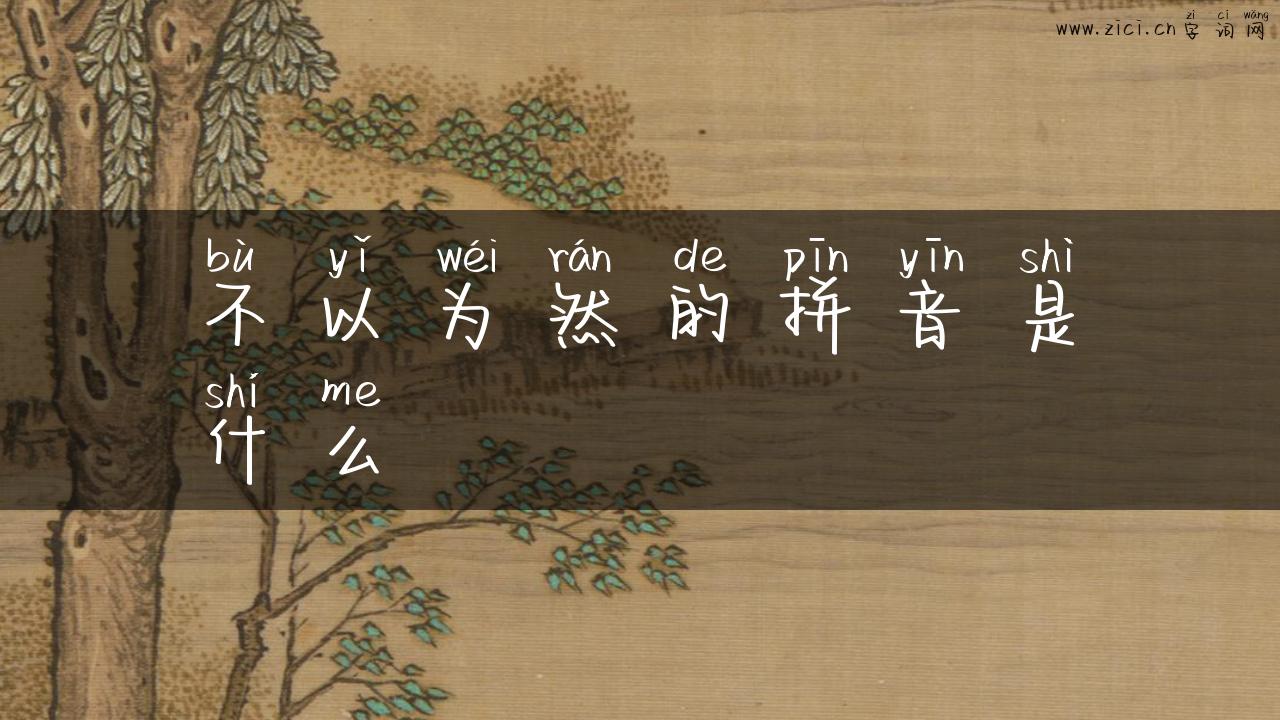 zì cí wǎng
www.zici.cn 字词网
bù yǐ wéi rán de pīn yīn shì
不以为然的拼音是
shí me
什么